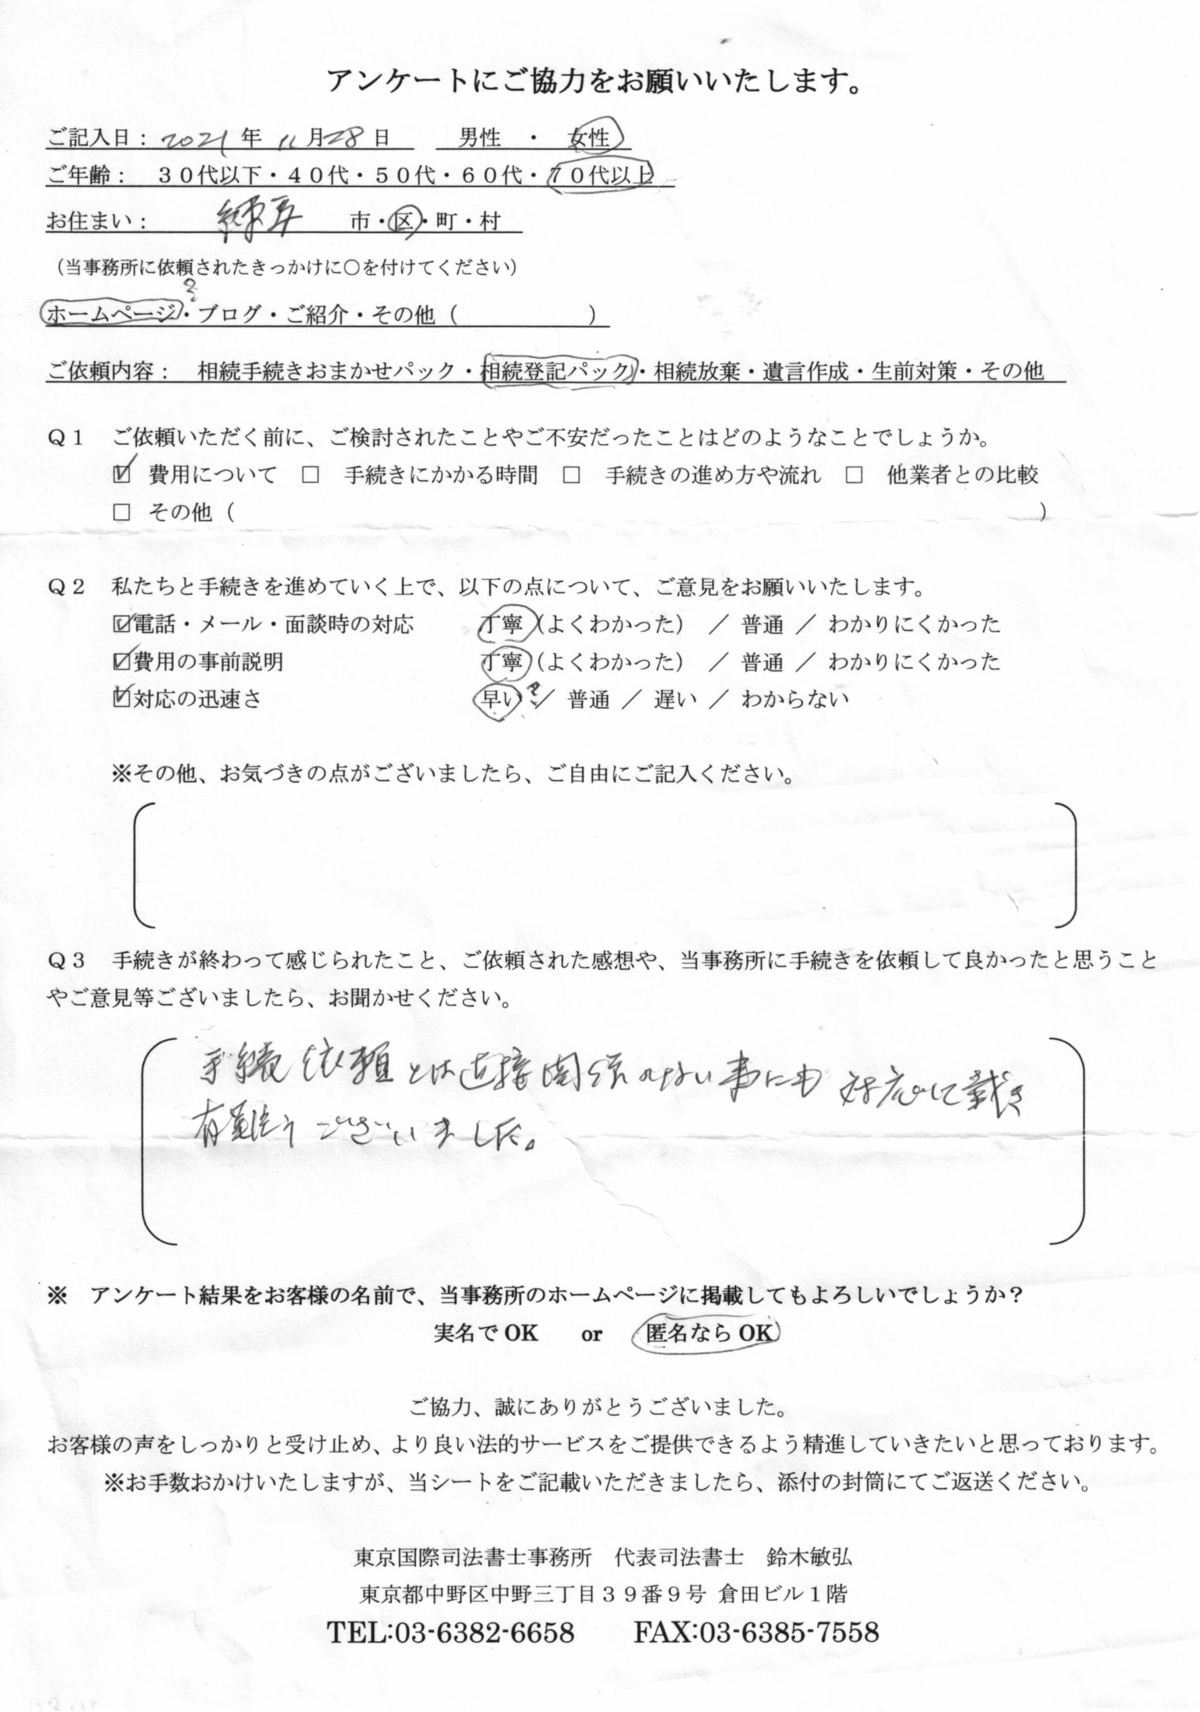 アンケートにご協力をお願いいたします。
ご記入日：2021年 11月28日　男性　・　女性
ご年齢：　３０代以下・４０代・５０代・６０代・７０代以上
お住まい：　練馬　市・区・町・村
（当事務所に依頼されたきっかけに○を付けてください）
?
ホームページ・ブログ・ご紹介・その他（　　　　　　）
ご依頼内容：　相続手続きおまかせパック・相続登記パック・相続放棄・遺言作成・生前対策・その他
Ｑ１　ご依頼いただく前に、ご検討されたことやご不安だったことはどのようなことでしょうか。
☑ 費用について　□　手続きにかかる時間　□　手続きの進め方や流れ　□　他業者との比較
□ その他（　　　　　　　　　　　　　　　　　　　　）
Ｑ２　私たちと手続きを進めていく上で、以下の点について、ご意見をお願いいたします。
☑電話・メール・面談時の対応　　丁寧（よくわかった）　／ 普通 ／ わかりにくかった
☑費用の事前説明　　丁寧（よくわかった）　／ 普通 ／ わかりにくかった
☑対応の迅速さ　　早い ? ／ 普通 ／ 遅い ／ わからない
※その他、お気づきの点がございましたら、ご自由にご記入ください。
Ｑ３　手続きが終わって感じられたこと、ご依頼された感想や、当事務所に手続きを依頼して良かったと思うこと
やご意見等ございましたら、お聞かせください。
手続依頼とは直接関係のない事にも対応して戴き
有難うございました。
※　アンケート結果をお客様の名前で、当事務所のホームページに掲載してもよろしいでしょうか？
実名で OK　　or　　匿名なら OK
ご協力、誠にありがとうございました。
お客様の声をしっかりと受け止め、より良い法的サービスをご提供できるよう精進していきたいと思っております。
※お手数おかけいたしますが、当シートをご記載いただきましたら、添付の封筒にてご返送ください。
東京国際司法書士事務所　代表司法書士　鈴木敏弘
東京都中野区中野三丁目３９番９号 倉田ビル１階
TEL:03-6382-6658　　FAX:03-6385-7558